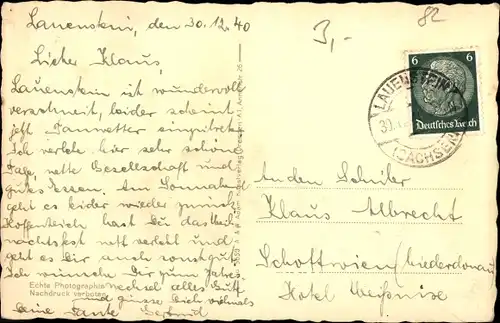 Lauenstein, den 30.12.40
Lieber Klaus,
Lauenstein ist wundervoll
verschneit, leider scheint
jetzt Tauwetter einzutreten
Ich verlebe hier sehr schöne
Tage, nette Gesellschaft und
gutes Essen. Am Sonnabend
geht es leider wieder zurück
Hoffentlich hast du das Weih
nachtsfest nett verlebt und
geht es Dir auch sonst gut.
Ich wünsche Dir zum Jahres
wechsel alles Gute
und grüsse Dich vielmals
Deine Tante Gertrud
Echte Photographie
Nachdruck verboten
3,-
82
6 6
Deutsches Reich
LAUENSTEIN
(SACHSEN)
An den Schüler
Klaus Albrecht
Schottwien (Niederdonau
Hotel